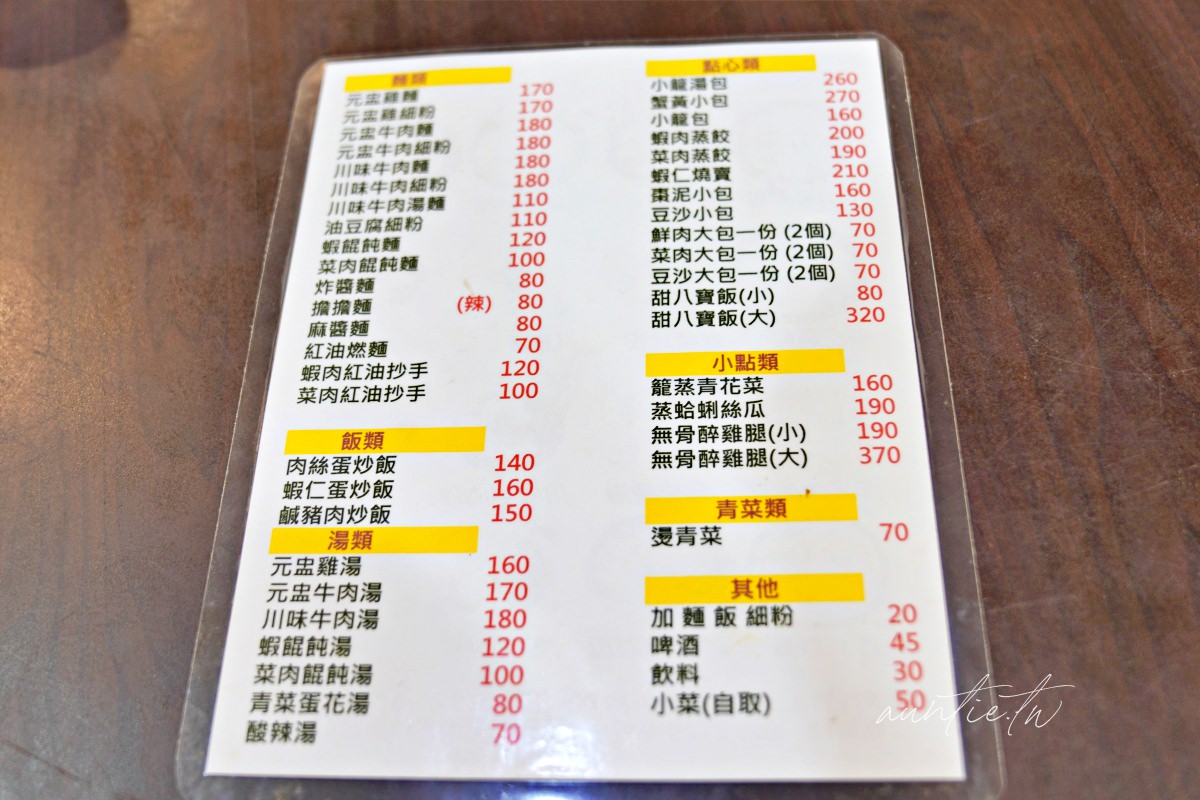 麵類
元盅雞麵 170
元盅雞細粉 170
元盅牛肉麵 180
元盅牛肉細粉 180
川味牛肉麵 180
川味牛肉細粉 180
川味牛肉湯麵 110
油豆腐細粉 110
蝦餛飩麵 120
菜肉餛飩麵 100
炸醬麵 80
擔擔麵 (辣) 80
麻醬麵 80
紅油燃麵 70
蝦肉紅油抄手 120
菜肉紅油抄手 100
飯類
肉絲蛋炒飯 140
蝦仁蛋炒飯 160
鹹豬肉炒飯 150
湯類
元盅雞湯 160
元盅牛肉湯 170
川味牛肉湯 180
蝦餛飩湯 120
菜肉餛飩湯 100
青菜蛋花湯 80
酸辣湯 70
點心類
小籠湯包 260
蟹黃小包 270
小籠包 160
蝦肉蒸餃 200
菜肉蒸餃 190
蝦仁燒賣 210
棗泥小包 160
豆沙小包 130
鮮肉大包一份 (2個) 70
菜肉大包一份 (2個) 70
豆沙大包一份 (2個) 70
甜八寶飯(小) 80
甜八寶飯(大) 320
小點類
籠蒸青花菜 160
蒸蛤蜊絲瓜 190
無骨醉雞腿(小) 190
無骨醉雞腿(大) 370
青菜類
燙青菜 70
其他
加 麵 飯 細粉 20
啤酒 45
飲料 30
小菜(自取) 50
auntie.tw